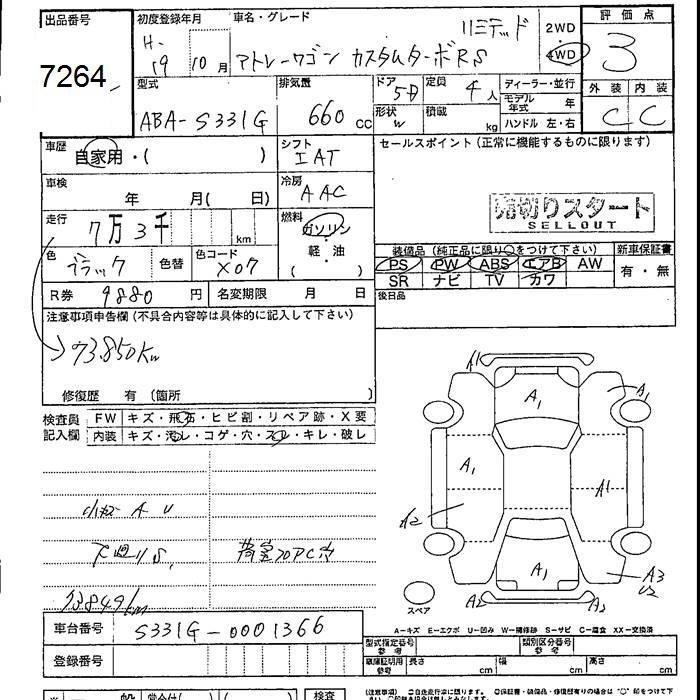 出品番号
7264
初度登録年月
H-19 10 月
車名・グレード
リミテッド
アトレーワゴン カスタムターボRS
2WD
・
4WD
評価点
3
外装 内装
C C
型式
ABA-S331G
排気量
660 cc
ドア
5D
形状
W
定員
4 人
積載
kg
ディーラー・並行
モデル年式 年
ハンドル 左・右
車歴
自家用・( )
シフト
I AT
セールスポイント(正常に機能するものに限ります)
車検
年 月( 日)
冷房
AAC
売切りスタート
SELLOUT
走行
7万3千 km
燃料
ガソリン
・
軽油
( )
色
ブラック
色替
色コード
X07
装備品(純正品に限り○をつけて下さい)
PS PW ABS エアB AW
SR ナビ TV カワ
新車保証書
有・無
R券 9880 円
名変期限 月 日
後日品
注意事項申告欄(不具合内容等は具体的に記入して下さい)
73,850Km
修復歴 有(箇所 )
検査員記入欄
FW キズ・飛石・ヒビ割・リペア跡・X要
内装 キズ・汚レ・コゲ・穴・スレ・キレ・破レ
小キズ A U
下廻りS,
荷室フロアC穴
73849km
A1
A1
A1
A1
A2
A1
A3
U2
A2
A3
スペア
A-キズ E-エクボ U-凹み W-補修跡 S-サビ C-腐食 XX-交換済
車台番号 S331G-0001366
登録番号
型式指定番号
参考
類別区分番号
参考
車庫証明用
参考
長さ cm
幅 cm
高さ cm
検査